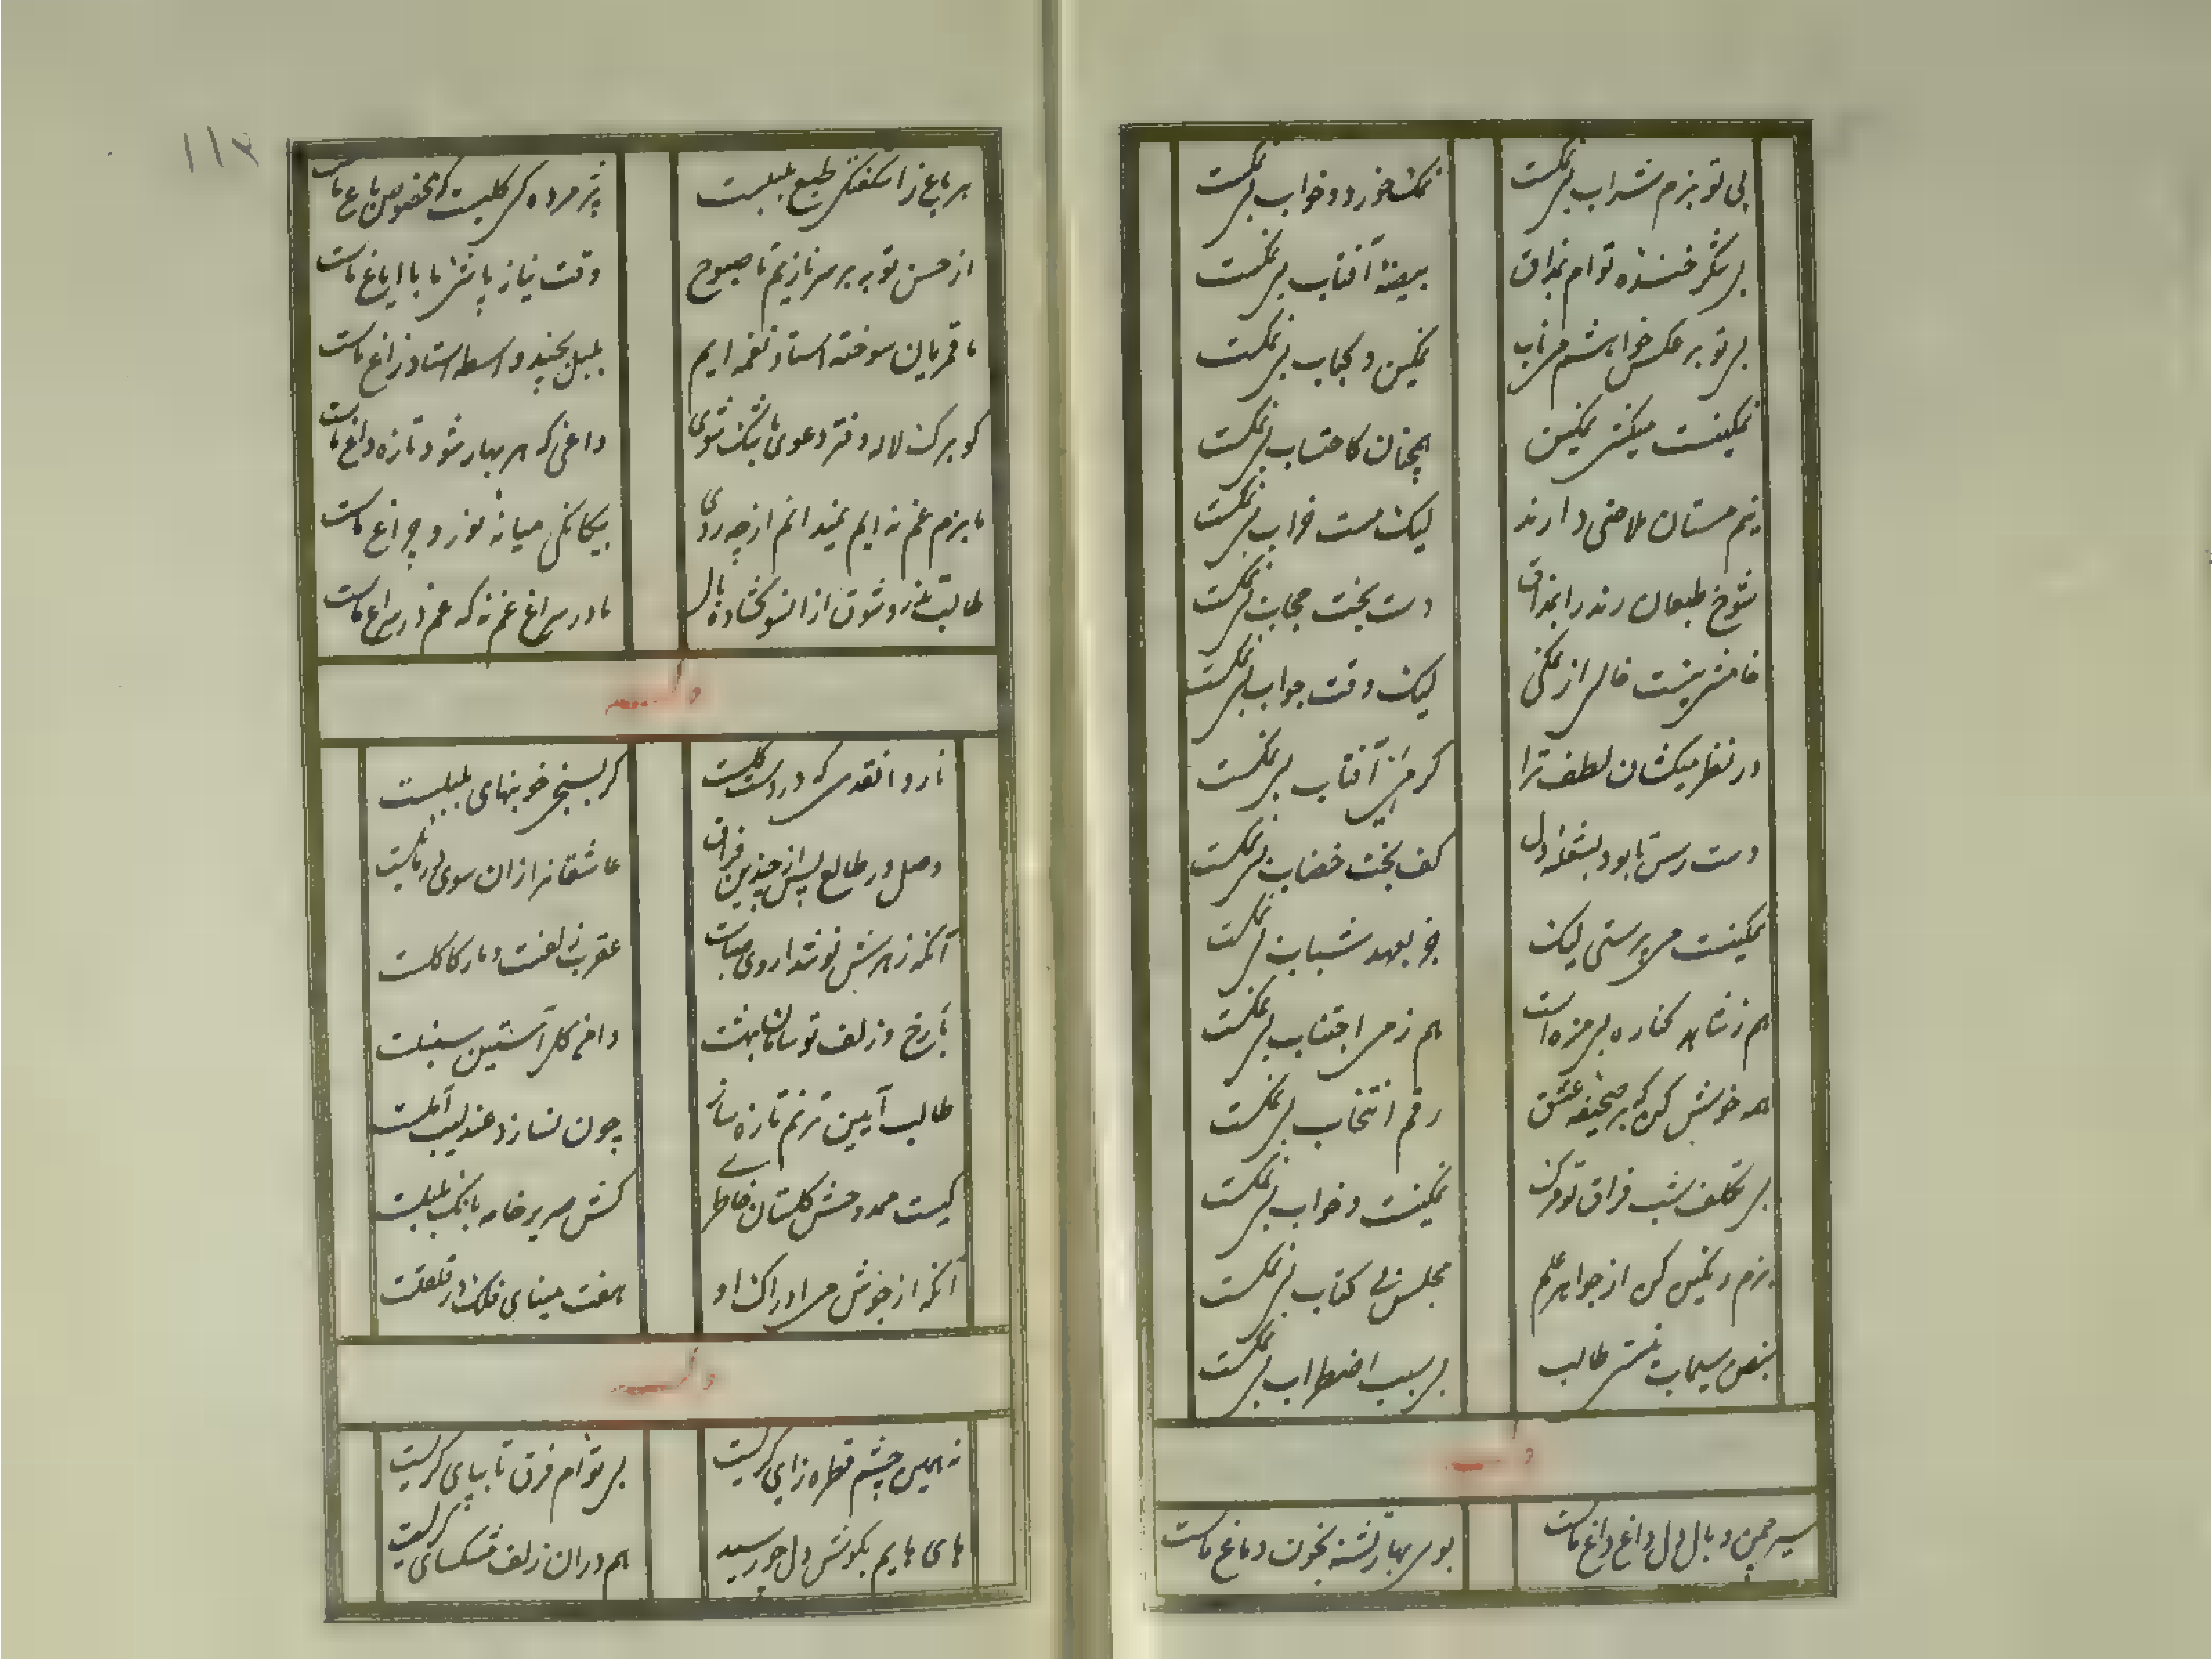 بی تو بزم شراب بی نمکست
نمک خورد و خواب بی نمکست
بی شکر خنده تو ام بمذاق
بیضهٔ آفتاب بی نمکست
بی تو بر عکس خواهشم
نمکین و کباب بی نمکست
نمکینست میکشی نمکین
همچنان کاحتساب بی نمکست
نیم مستان ملاحتی دارند
لیک مست خراب بی نمکست
شوخ طبعان رند را بمذاق
دست بخت حجاب بی نمکست
خامشی نیست خالی از نمکی
لیک وقت جواب بی نمکست
در نظر میکشان لطف ترا
آفتاب بی نمکست
دست رس تا بود دل
کف بخت خضاب بی نمکست
نمکینست می پرستی لیک
جز بعهد شباب بی نمکست
هم ز شاهد کناره بی مزه است
هم ز می اجتناب بی نمکست
همه خویش کن که بر صحیفه عشق
رقم انتخاب بی نمکست
بی تکلف شب فراق تو مرک
نمکینست و خواب بی نمکست
بزم رنگین کن از جواهر علم
مجلس بی کتاب بی نمکست
نبض سیماب نیستی طالب
بی سبب اضطراب بی نمکست
وله
سیر چمن وبال دل داغ داغ ماست
بوی بهار تشنه بخون دماغ ماست
۱۱۳
هر باغ را شکفتگی طبع بلبلست
پژمرده کی گلیست که مخصوص باغ ماست
از حسن توبه بر سر نازیم تا صبوح
وقت نیاز پاشی ما با ایاغ ماست
ما قمریان سوخته استاد نغمه ایم
بلبل بچند واسطه استاد زاغ ماست
کو برک لاله دفتر دعوی شوی
داغی که هر بهار شود تازه داغ ماست
ما بزم غم نه ایم نمیدانم از چه روی
بیکانگی میانهٔ نور و چراغ ماست
طالب شوق از کشاده بال
ما در سراغ غم نه که غم در سراغ ماست
وله
ناروا نقدی که در دست گلست
خونبهای بلبلست
وصل در طالع پس از چندین فراق
عاشقانرا زان سوی
آنکه زهرش نوشداروی
عقرب زلفست و مار کاکلست
با رخ و زلف تو بهشت
داغ آستین سنبلست
طالب آیین ترنم تازه ساز
چون نسازد عندلیب آملست
کیست ممدوحش گلستان خاطری
کش صریر خامه بانگ بلبلست
آنکه از جوش می ادراک او
هفت مینای فلک در قلقلست
وله
نه همین چشم قطره زای گریست
بی تو ام فرق تا بپای گریست
های هایم بگوش دل چو رسید
هم دران زلف مشکسای گریست